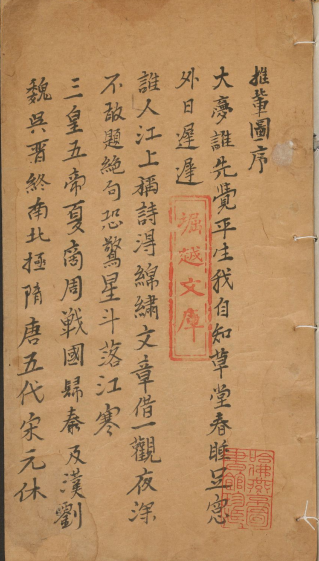 推輩圖序
大夢誰先覺平生我自知草堂春睡足窓
外日遲遲
誰人江上稱詩淂綿繡文章借一觀夜深
不敢題絕句恐驚星斗落江寒
三皇五帝夏商周戰國歸秦及漢劉
魏吳晋終南北極隋唐五代宋元休
堀越文庫